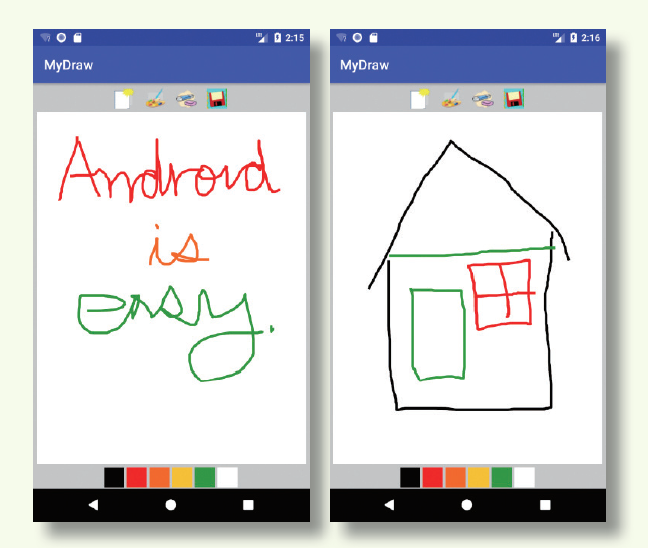 2:15
MyDraw
Android
is
easy.
2:16
MyDraw